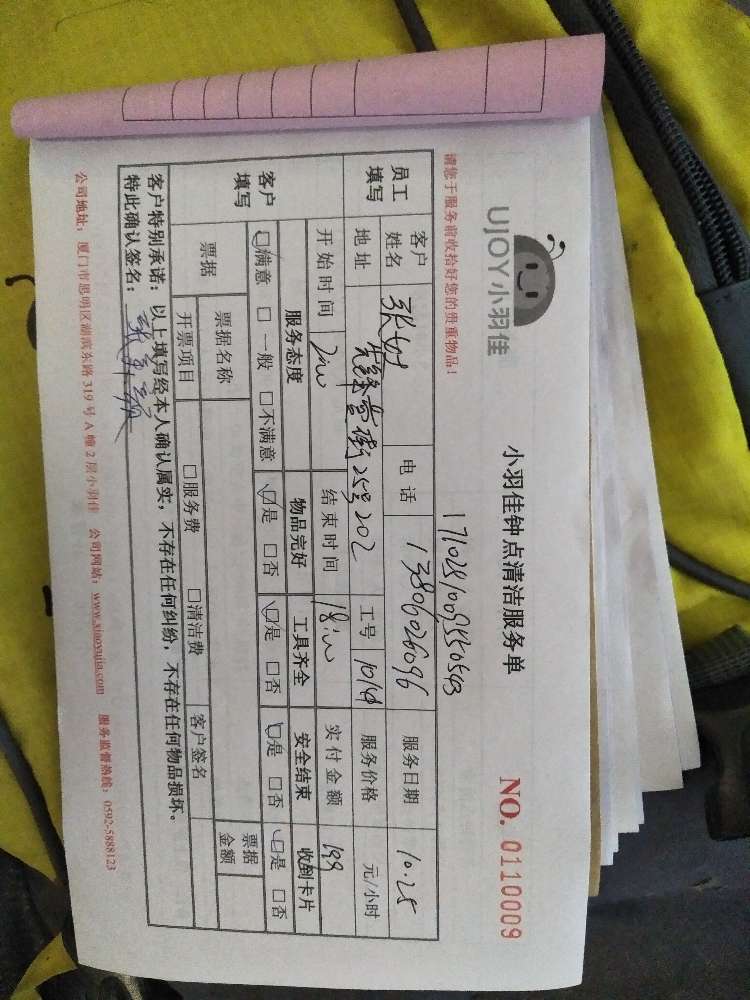 UJOY小羽佳
小羽佳钟点清洁服务单
NO. 0110009
请您于服务前收拾好您的贵重物品!
员工填写
客户姓名
电话 13806026096
服务日期 10.25
地址 25号202
工号
服务价格 元/小时
开始时间
结束时间
实付金额 199
客户填写
服务态度 物品完好 工具齐全 安全结束 收到卡片
☑满意 □一般 □不满意 ☑是 □否 ☑是 □否 ☑是 □否 ☑是 □否
票据 票据名称 票据金额
开票项目 □服务费 □清洁费 客户签名
客户特别承诺:以上填写经本人确认属实,不存在任何纠纷,不存在任何物品损坏。
特此确认签名:
公司地址:厦门市思明区湖滨东路 319 号 A 幢 2 层小羽佳 公司网站:www.xiaoyujia.com 服务监督热线:0592-5888123